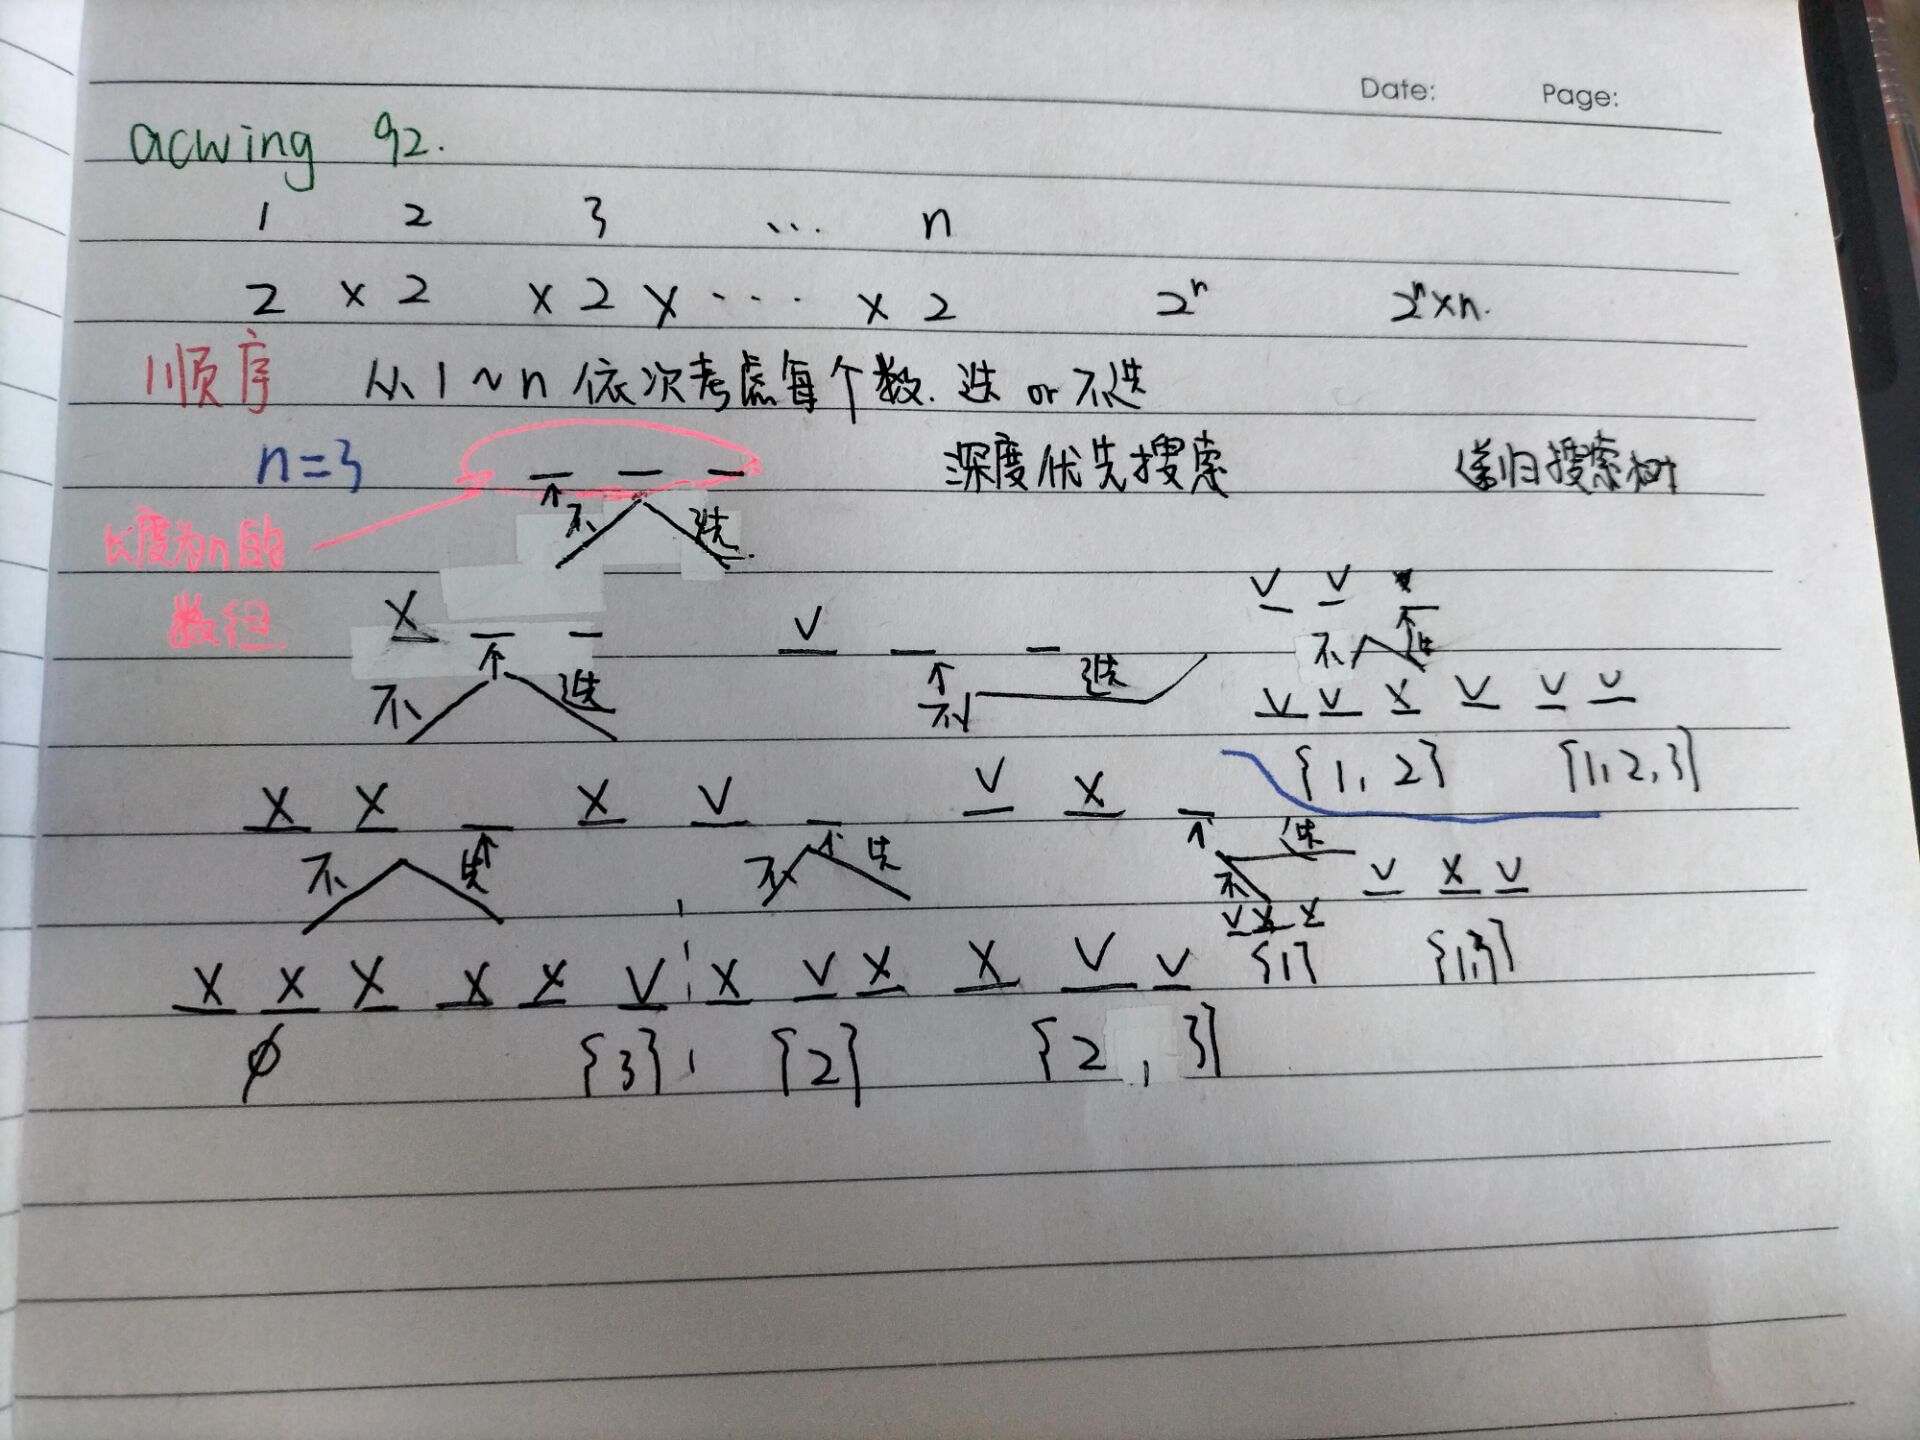 Date: Page:
acwing 92.
1 2 3 ... n
2 × 2 × 2 × ... × 2 2ⁿ 2ⁿ×n.
顺序 从1~n依次考虑每个数. 选 or 不选
n=3 _ _ _ 深度优先搜索 递归搜索树
↑ 不 选
长度为n的
数组
V V _
X _ _ V _ _ ↑ 不 选
↑ 不 选 ↑ 不 选 V V X V V V
{1, 2} {1,2,3}
X X _ X V _ V X _
不 选 ↑ 不 ↑ 选 ↑ 不 选 V X V
V X X
X X X X X V X V X X V V {1} {1,3}
∅ {3} {2} {2, 3}